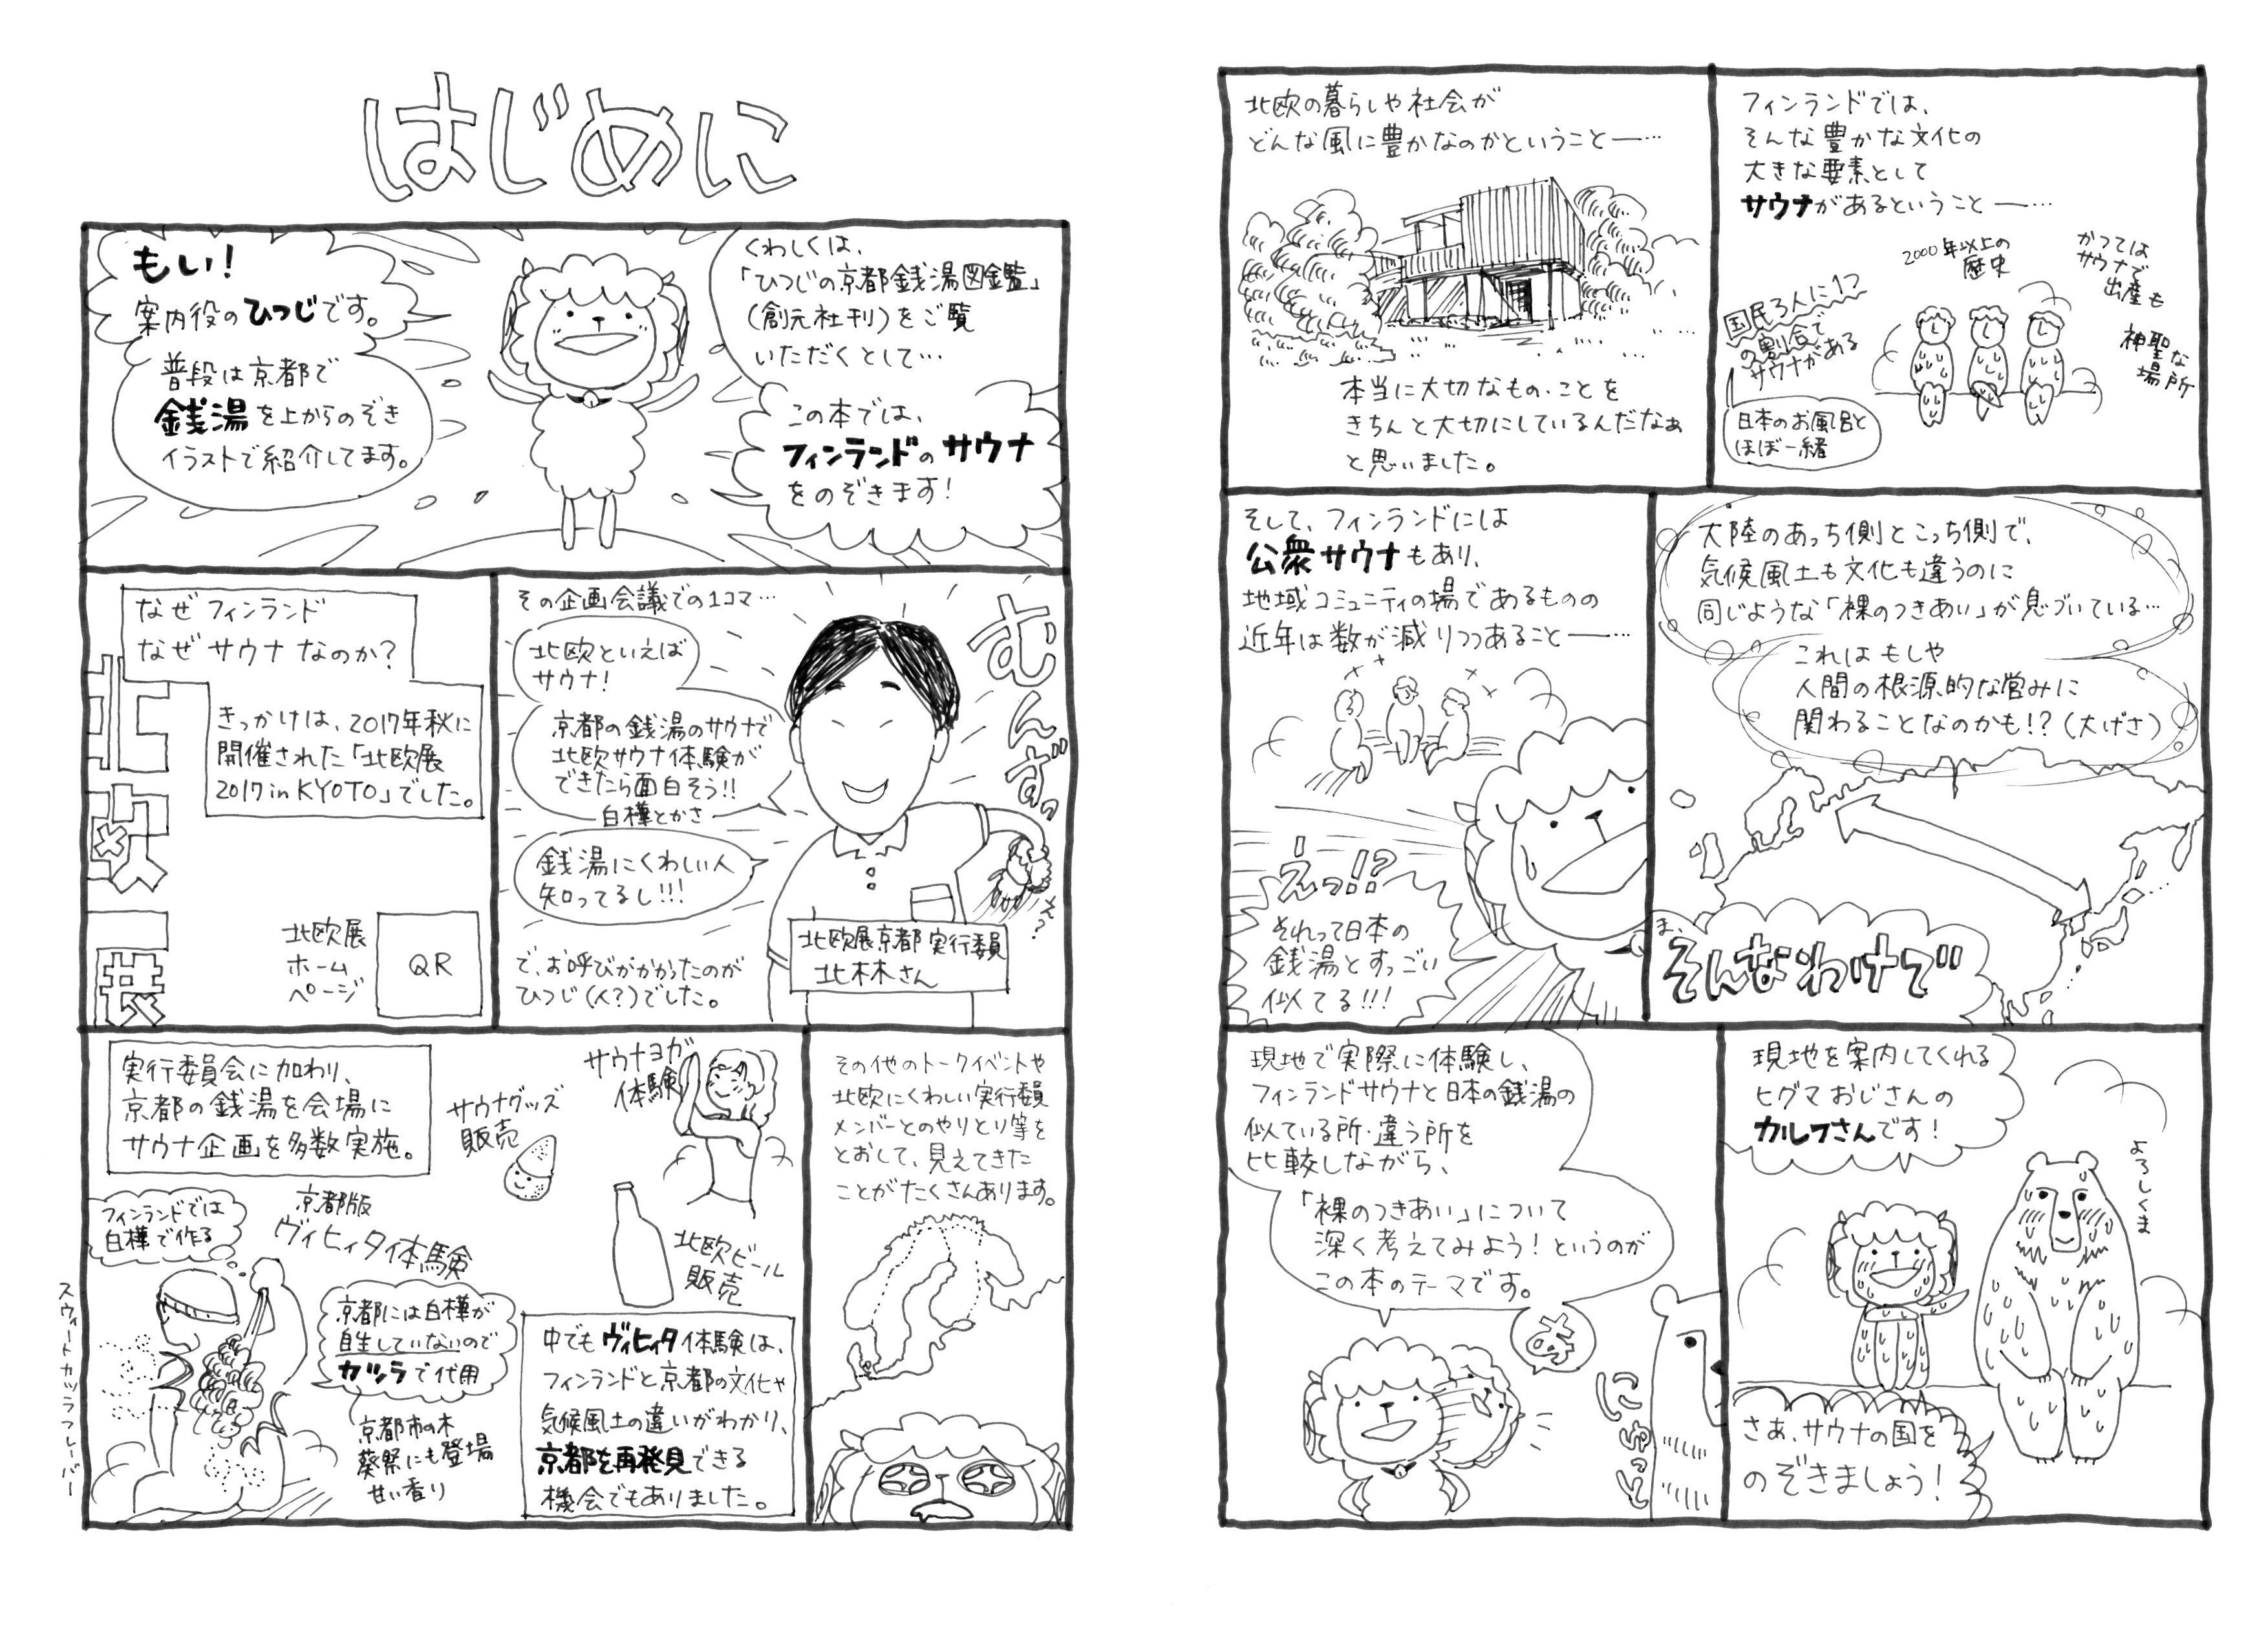 はじめに
もい!
案内役のひつじです。
普段は京都で
銭湯を上からのぞき
イラストで紹介してます。
くわしくは、
「ひつじの京都銭湯図鑑」
(創元社刊)をご覧
いただくとして…
この本では、
フィンランドのサウナ
をのぞきます!
なぜフィンランド
なぜサウナなのか?
きっかけは、2017年秋に
開催された「北欧展
2017 in KYOTO」でした。
北欧展
北欧展
ホーム
ページ
QR
その企画会議での1コマ…
北欧といえば
サウナ!
京都の銭湯のサウナで
北欧サウナ体験が
できたら面白そう!!
白樺とかさ
銭湯にくわしい人
知ってるし!!!
むんずっ
え?
北欧展京都実行委員
北林さん
で、お呼びがかかったのが
ひつじ(人?)でした。
実行委員会に加わり、
京都の銭湯を会場に
サウナ企画を多数実施。
サウナグッズ
販売
サウナヨガ
体験
フィンランドでは
白樺で作る
京都版
ヴィヒタ体験
北欧ビール
販売
京都には白樺が
自生していないので
カツラで代用
京都市の木
葵祭にも登場
甘い香り
スウィートカツラフレーバー
中でもヴィヒタ体験は、
フィンランドと京都の文化や
気候風土の違いがわかり、
京都を再発見できる
機会でもありました。
その他のトークイベントや
北欧にくわしい実行委員
メンバーとのやりとり等を
とおして、見えてきた
ことがたくさんあります。
北欧の暮らしや社会が
どんな風に豊かなのかということ――…
本当に大切なもの・ことを
きちんと大切にしているんだなぁ
と思いました。
フィンランドでは、
そんな豊かな文化の
大きな要素として
サウナがあるということ――…
国民3人に1つ
の割合で
サウナがある
日本のお風呂と
ほぼ一緒
2000年以上の
歴史
かつては
サウナで
出産も
神聖な
場所
そして、フィンランドには
公衆サウナもあり、
地域コミュニティの場であるものの
近年は数が減りつつあること――…
えっ!!?
それって日本の
銭湯とすっごい
似てる!!!
大陸のあっち側とこっち側で、
気候風土も文化も違うのに
同じような「裸のつきあい」が息づいている…
これはもしや
人間の根源的な営みに
関わることなのかも!?(大げさ)
ま、
そんなわけで
現地で実際に体験し、
フィンランドサウナと日本の銭湯の
似ている所・違う所を
比較しながら、
「裸のつきあい」について
深く考えてみよう!というのが
この本のテーマです。
お
にゅっ
現地を案内してくれる
ヒグマおじさんの
カルフさんです!
よろしくま
さあ、サウナの国を
のぞきましょう!